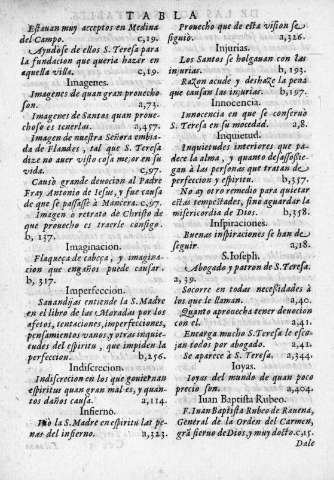 TABLA
Estauan muy acceptos en Medina
del Campo. c,19.
Ayudòse de ellos S. Teresa para
la fundacion que queria hazer en
aquella villa. c,19.
Imagenes.
Imagenes de quan gran prouecho
son. a,73.
Imagenes de Santos quan proue-
choso es tenerlas. a,457.
Imagen de nuestra Señora embia-
da de Flandes, tal que S. Teresa
dize no auer visto cosa mejor en su
vida. c,97.
Causò grande deuocion al Padre
Fray Antonio de Iesus, y fue causa
de que se passasse à Mancera. c.97.
Imagen o retrato de Christo de
que prouecho es traerle consigo.
b, 137.
Imaginacion.
Flaqueça de cabeça, y imagina-
cion que engaños puede causar.
b.317.
Imperfeccion.
Sauandijas entiende la S. Madre
en el libro de las Moradas por los
afetos, tentaciones, imperfecciones,
pensamientos vanos, y otras inquie-
tudes del espiritu, que impiden la
perfeccion. b,256.
Indiscrecion.
Indiscrecion en los que gouiernan
espiritus quan gran mal es, y quan-
tos daños causa. a,114.
Infierno.
Viò la S. Madre en espiritu las pe-
nas del infierno. a,323.
Prouecho que de esta vision se
siguiò. a,326.
Injurias.
Los Santos se holgauan con las
injurias. b,193.
Razon acude y deshaze la pena
que causan las injurias. b,197.
Innocencia.
Innocencia en que se conseruò
S. Teresa en su mocedad. a,8.
Inquietud.
Inquietudes interiores que pa-
dece la alma, y quanto desassossie-
gan à las personas que tratan de
perfeccion y espiritu. b,357.
No ay otro remedio para quietar
estas tempestades, sino aguardar la
misericordia de Dios. b,358.
Inspiraciones.
Buenas inspiraciones se han de
seguir. a,18.
S. Ioseph.
Abogado y patron de S. Teresa.
a, 39.
Socorre en todas necessidades à
los que le llaman. a,40.
Quanto aprouecha tener deuocion
con el. a,41.
Encarga mucho S. Teresa le esco-
jan todos por abogado. a,41.
Se aparece à S. Teresa. a,344.
Ioyas.
Ioyas del mundo de quan poco
precio son. a,404.
Iuan Baptista Rubeo.
F. Iuan Baptista Rubeo de Rauena,
General de la Orden del Carmen,
grã sieruo de Dios, y muy docto. c,15.
Dale